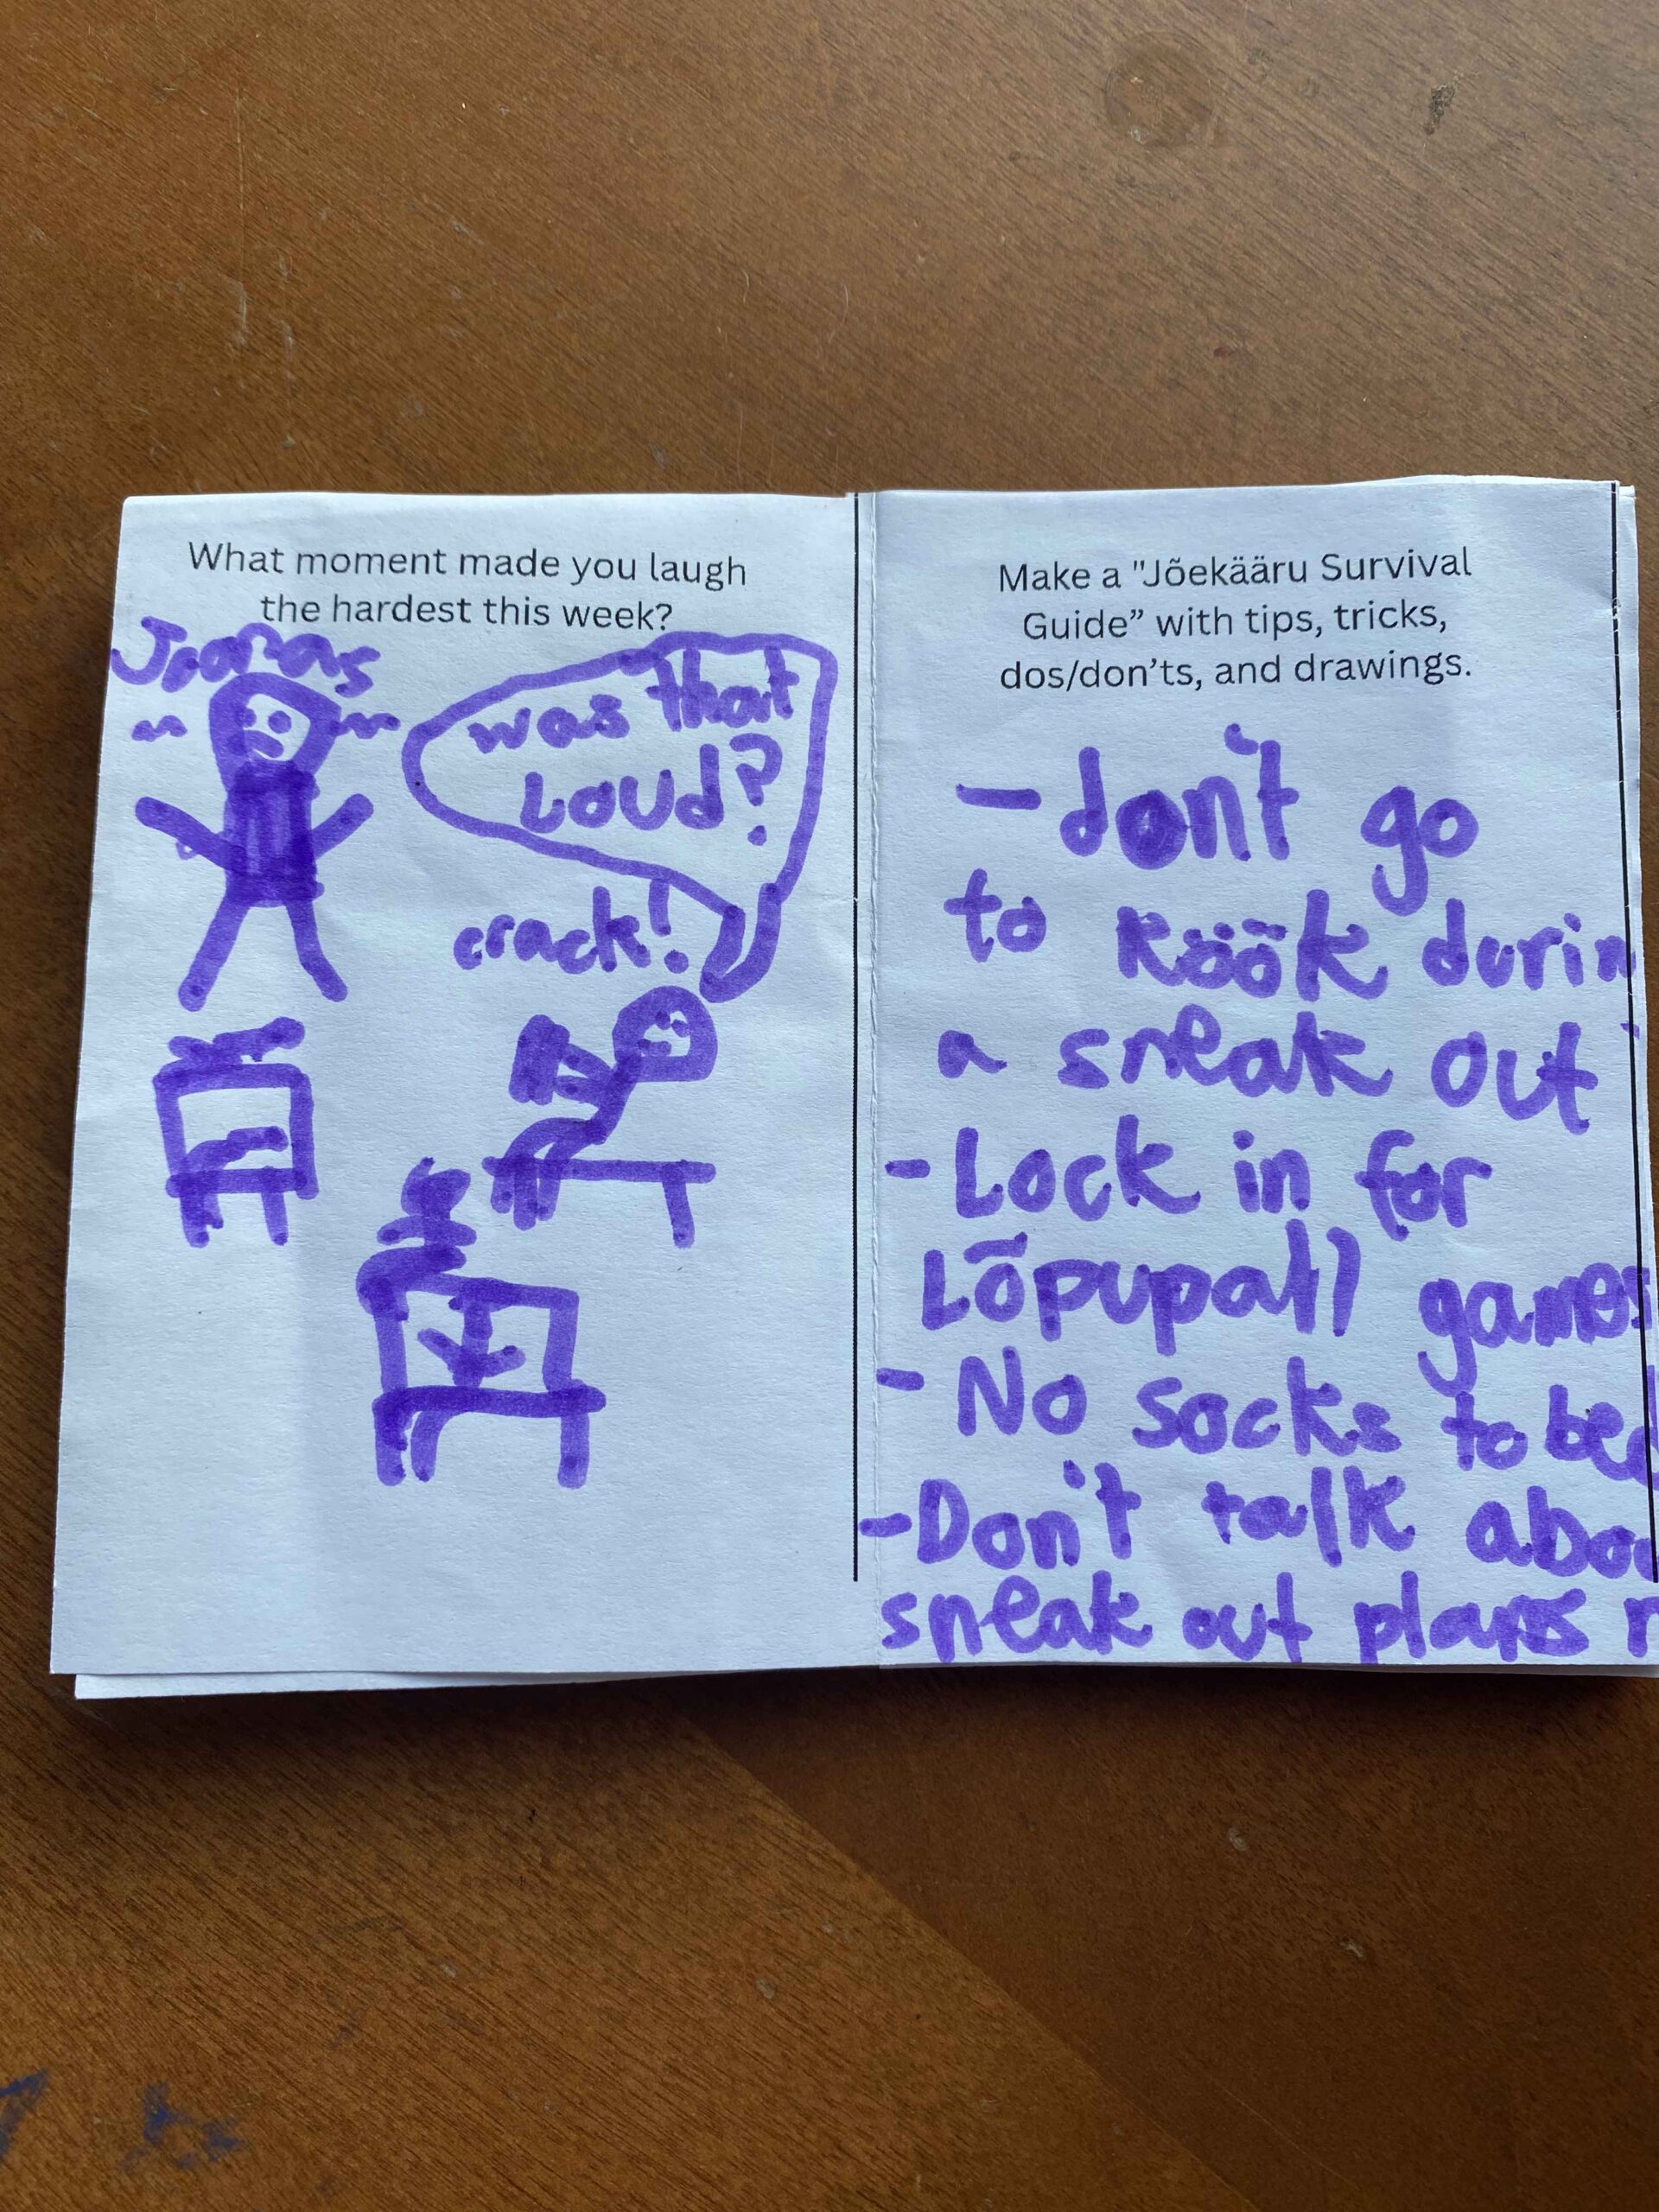 What moment made you laugh
the hardest this week?
Joonas
was that
Loud?
crack!
Make a "Jõekääru Survival
Guide” with tips, tricks,
dos/don’ts, and drawings.
- don't go
to köök durin
a sneak out
- Lock in for
Lõpupall games
- No socks to bed
- Don't talk abou
sneak out plans